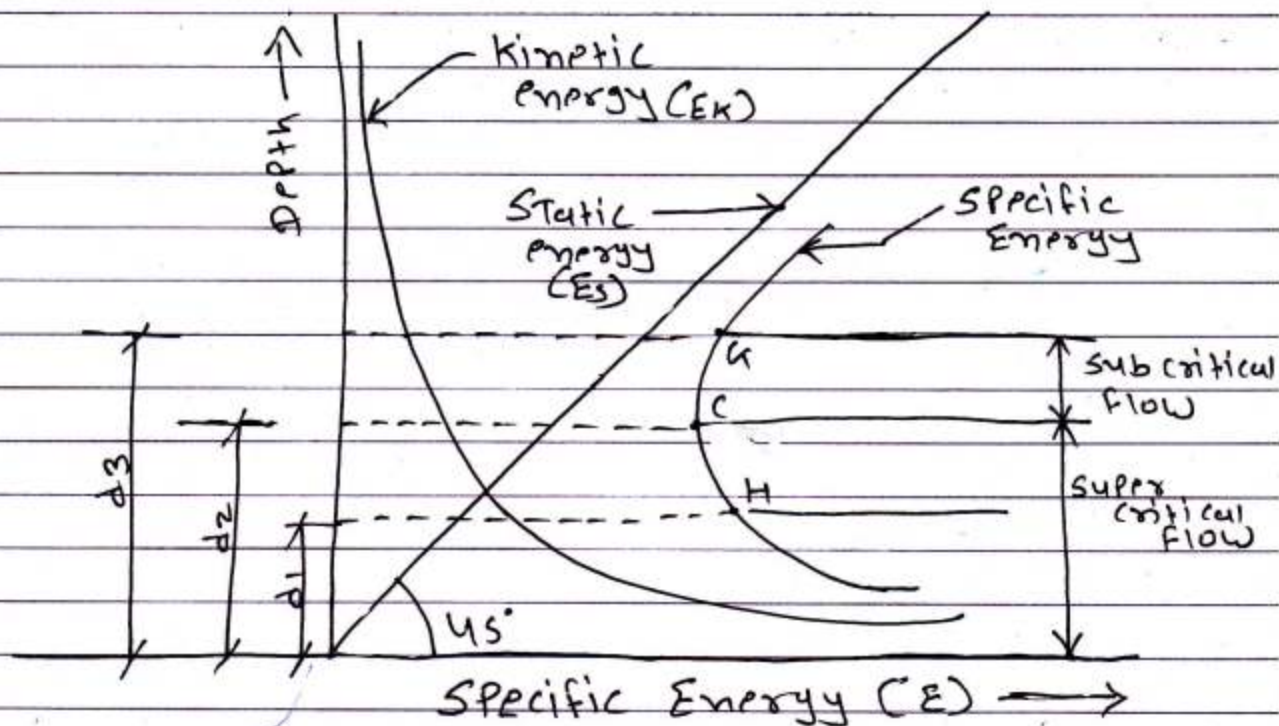 Kinetic
energy (EK)
Depth
Static
energy
(ES)
Specific
Energy
G
C
H
Sub critical
flow
Super
critical
flow
d3
d2
d1
45°
Specific Energy (E)